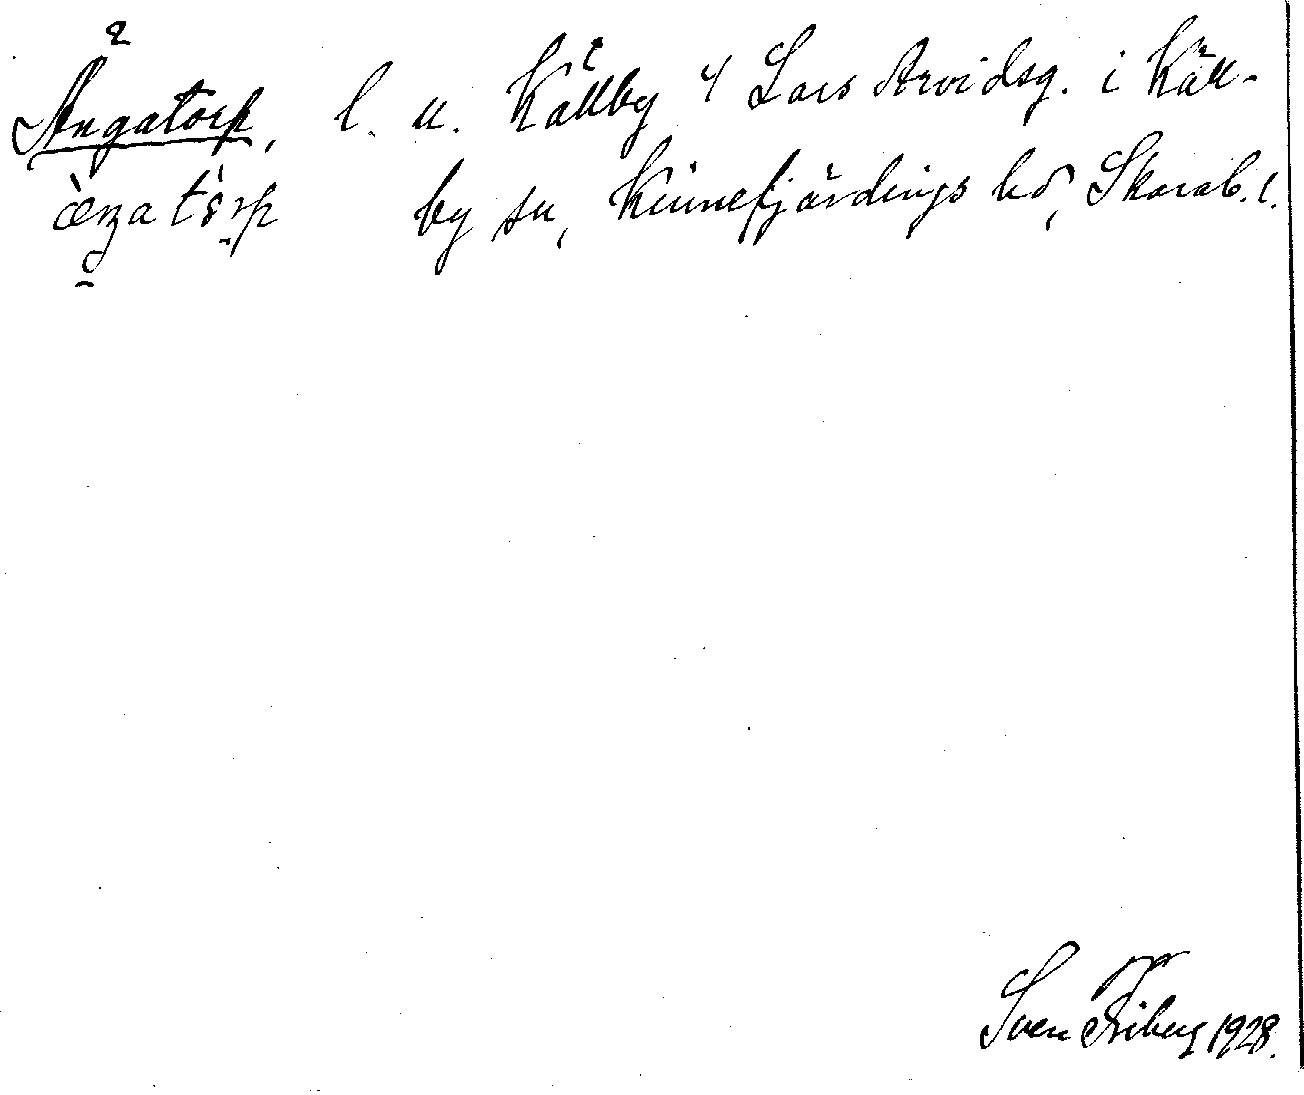 Ängatorp, l. u. Källby 4 Lars Arvidsg. i Käll-
by sn, Kinnefjärdings hd, Skarab. l.
Sven Friberg 1928.